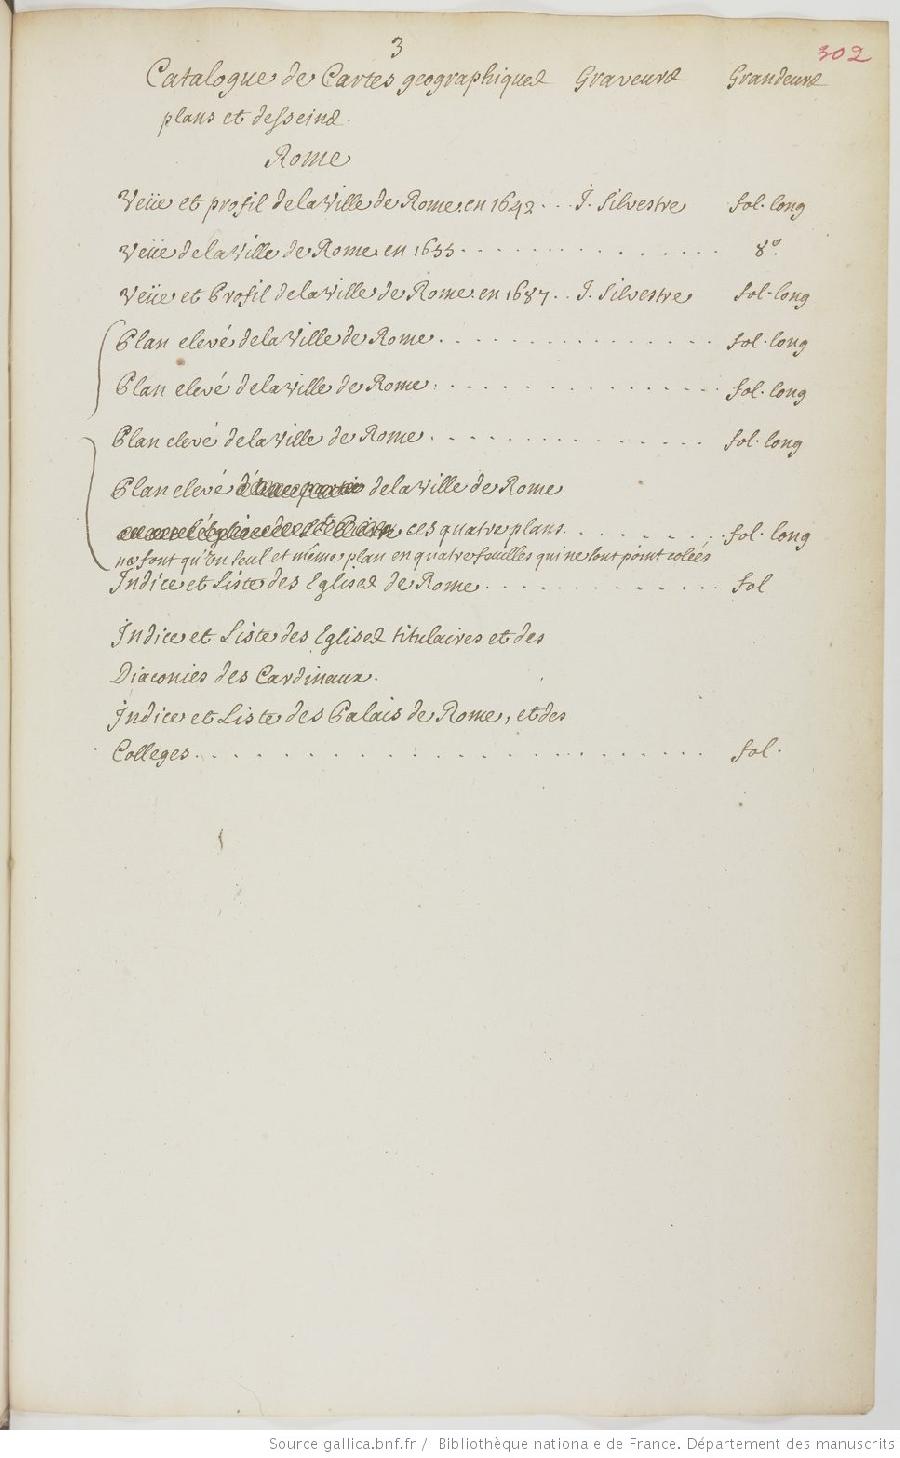 3
302
Catalogue de Cartes geographiques Graveurs Grandeurs
plans et desseins
Rome
Veüe et profil de la Ville de Rome en 1642 . . . J. Silvestre fol. long
Veüe de la Ville de Rome en 1655 . . . . . . . . . . . . 8º
Veüe et Profil de la Ville de Rome en 1687 . . J. Silvestre fol. long
Plan elevé de la Ville de Rome . . . . . . . . . . . . . . . fol. long
Plan elevé de la Ville de Rome . . . . . . . . . . . . . . . fol. long
Plan elevé de la Ville de Rome . . . . . . . . . . . . . . . fol. long
Plan elevé d'une partie de la Ville de Rome
ces quatre plans . . . . . . . . fol. long
ne font qu'un seul et même plan en quatre feuilles qui ne sont point colées
Indice et Liste des Eglises de Rome . . . . . . . . . . . . . fol
Indice et Liste des Eglises titulaires et des
Diaconies des Cardinaux.
Indice et Liste des Palais de Rome, et des
Colleges . . . . . . . . . . . . . . . . . . . . . . . fol.
Source gallica.bnf.fr / Bibliothèque nationale de France. Département des manuscrits